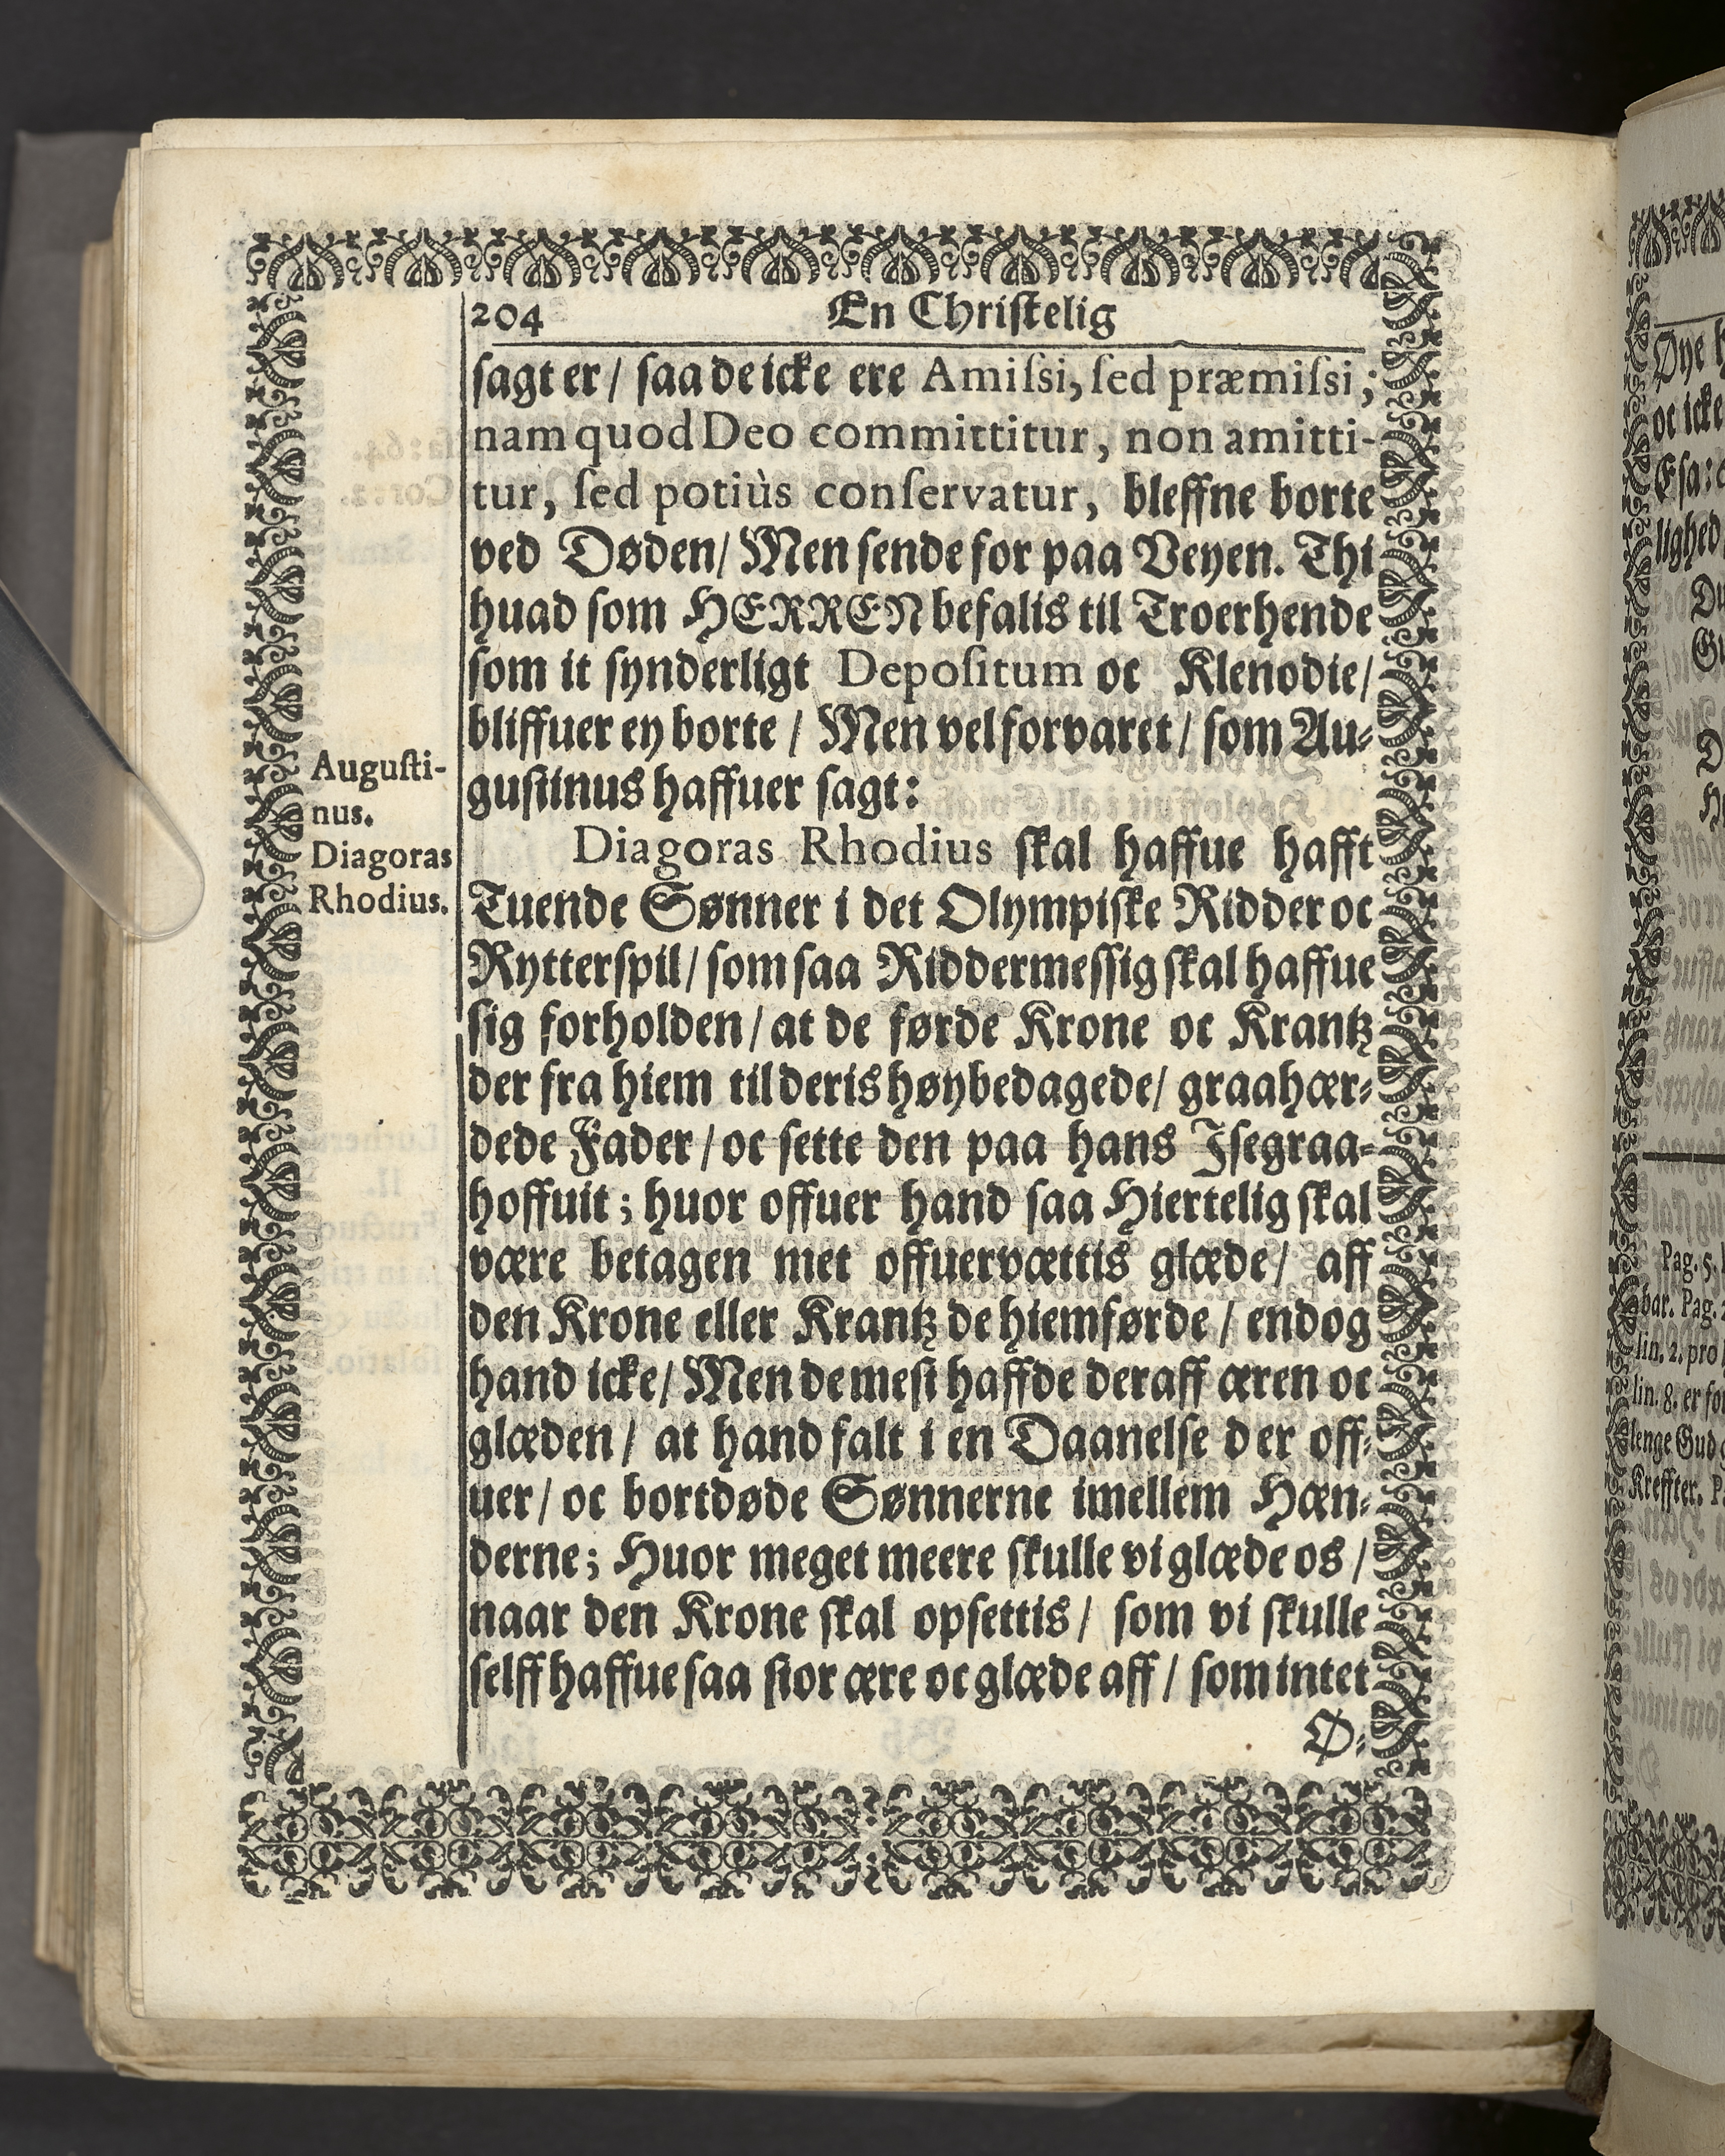 204 En Christelig
sagt er / saa de icke ere Amissi, sed præmissi;
nam quod Deo committitur, non amitti-
tur, sed potiùs conservatur, bleffne borte
ved Døden/ Men sende for paa Veyen. Thi
huad som HERREN befalis til Troerhende
som it synderligt Depositum oc Klenodie/
bliffuer ey borte / Men vel forvaret / som Au-
gustinus haffuer sagt:
Augusti-
nus.
Diagoras
Rhodius.
Diagoras Rhodius skal haffue hafft
Tuende Sønner i det Olympiske Ridder oc
Rytterspil/ som saa Riddermessig skal haffue
sig forholden / at de førde Krone oc Krantz
der fra hiem til deris høybedagede/ graahær-
dede Fader / oc sette den paa hans Isegraa-
hoffuit; huor offuer hand saa Hiertelig skal
være betagen met offuervættis glæde/ aff
den Krone eller Krantz de hiemførde / endog
hand icke/ Men de mest haffde deraff æren oc
glæden / at hand falt i en Daanelse der off-
uer / oc bortdøde Sønnerne imellem Hæn-
derne; Huor meget meere skulle vi glæde os /
naar den Krone skal opsettis / som vi skulle
selff haffue saa stor ære oc glæde aff / som intet
Ø-
Øye
oc icke
Esa:
lighed
Pag. 5.
bar. Pag.
lin. 2. pro
lin. 8. er for
lenge Gud
Kreffter.